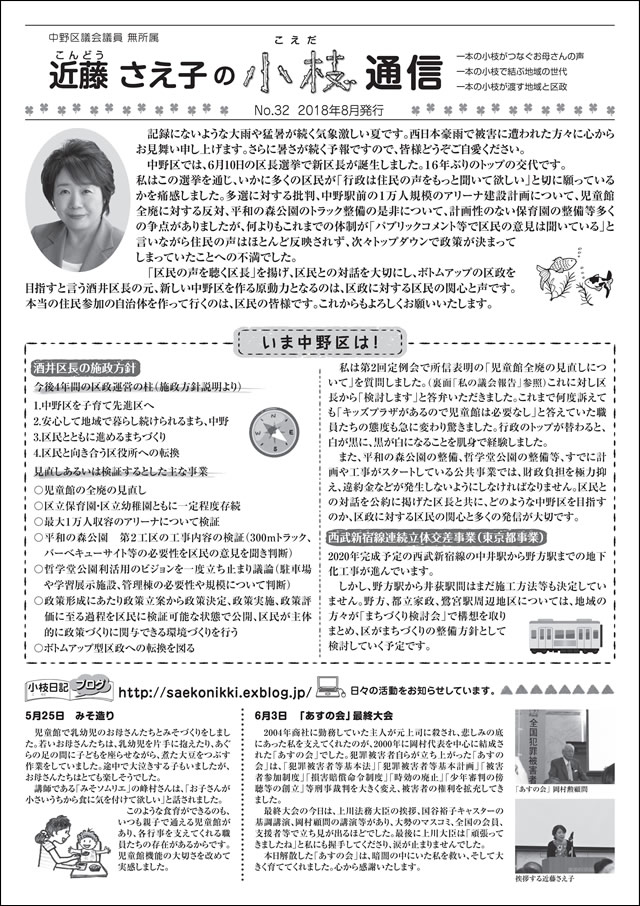 中野区議会議員 無所属
こんどう
こえだ
近藤 さえ子の 小枝 通信
一本の小枝がつなぐお母さんの声
一本の小枝で結ぶ地域の世代
一本の小枝が渡す地域と区政
No.32 2018年8月発行
記録にないような大雨や猛暑が続く気象激しい夏です。西日本豪雨で被害に遭われた方々に心から
お見舞い申し上げます。さらに暑さが続く予報ですので、皆様どうぞご自愛ください。
中野区では、6月10日の区長選挙で新区長が誕生しました。16年ぶりのトップの交代です。
私はこの選挙を通じ、いかに多くの区民が「行政は住民の声をもっと聞いて欲しい」と切に願っている
かを痛感しました。多選に対する批判、中野駅前の1万人規模のアリーナ建設計画について、児童館
全廃に対する反対、平和の森公園のトラック整備の是非について、計画性のない保育園の整備等多く
の争点がありましたが、何よりもこれまでの体制が「パブリックコメント等で区民の意見は聞いている」と
言いながら住民の声はほとんど反映されず、次々トップダウンで政策が決まって
しまっていたことへの不満でした。
「区民の声を聴く区長」を揚げ、区民との対話を大切にし、ボトムアップの区政を
目指すと言う酒井区長の元、新しい中野区を作る原動力となるのは、区政に対する区民の関心と声です。
本当の住民参加の自治体を作って行くのは、区民の皆様です。これからもよろしくお願いいたします。
いま中野区は!
酒井区長の施政方針
今後4年間の区政運営の柱(施政方針説明より)
1.中野区を子育て先進区へ
2.安心して地域で暮らし続けられるまち、中野
3.区民とともに進めるまちづくり
4.区民と向き合う区役所への転換
見直しあるいは検証するとした主な事業
○児童館の全廃の見直し
○区立保育園・区立幼稚園ともに一定程度存続
○最大1万人収容のアリーナについて検証
○平和の森公園 第2工区の工事内容の検証(300mトラック、
バーベキューサイト等の必要性を区民の意見を聞き判断)
○哲学堂公園利活用のビジョンを一度立ち止まり議論(駐車場
や学習展示施設、管理棟の必要性や規模について判断)
○政策形成にあたり政策立案から政策決定、政策実施、政策評
価に至る過程を区民に検証可能な状態で公開、区民が主体
的に政策づくりに関与できる環境づくりを行う
○ボトムアップ型区政への転換を図る
私は第2回定例会で所信表明の「児童館全廃の見直しにつ
いて」を質問しました。(裏面「私の議会報告」参照)これに対し区
長から「検討します」と答弁いただきました。これまで何度訴えて
も「キッズプラザがあるので児童館は必要なし」と答えていた職
員たちの態度も急に変わり驚きました。行政のトップが替わると、
白が黒に、黒が白になることを肌身で経験しました。
また、平和の森公園の整備、哲学堂公園の整備等、すでに計
画や工事がスタートしている公共事業では、財政負担を極力抑
え、違約金などが発生しないようにしなければなりません。区民と
の対話を公約に掲げた区長と共に、どのような中野区を目指す
のか、区政に対する区民の関心と多くの発信が大切です。
西武新宿線連続立体交差事業(東京都事業)
2020年完成予定の西武新宿線の中井駅から野方駅までの地下
化工事が進んでいます。
しかし、野方駅から井荻駅間はまだ施工方法等も決定してい
ません。野方、都立家政、鷺宮駅周辺地区については、地域の
方々が「まちづくり検討会」で構想を取り
まとめ、区がまちづくりの整備方針として
検討していく予定です。
小枝日記 ブログ http://saekonikki.exblog.jp/ 日々の活動をお知らせしています。
5月25日 みそ造り
児童館で乳幼児のお母さんたちとみそづくりをしまし
た。若いお母さんたちは、乳幼児を片手に抱えたり、あぐ
らの足の間に子どもを座らせながら、煮た大豆をつぶす
作業をしていました。途中で大泣きする子もいましたが、
お母さんたちはとても楽しそうでした。
講師である「みそソムリエ」の峰村さんは、「お子さんが
小さいうちから食に気を付けて欲しい」と話されました。
このような食育ができるのも、
いつも親子で通える児童館が
あり、各行事を支えてくれる職
員たちの存在があるからです。
児童館機能の大切さを改めて
実感しました。
6月3日 「あすの会」最終大会
2004年商社に勤務していた主人が元上司に殺され、悲しみの底
にあった私を支えてくれたのが、2000年に岡村代表を中心に結成さ
れた「あすの会」でした。犯罪被害者自らが立ち上がった「あすの
会」は、「犯罪被害者等基本法」「犯罪被害者等基本計画」「被害
者参加制度」「損害賠償命令制度」「時効の廃止」「少年審判の傍
聴等の創立」等刑事裁判を大きく変え、被害者の権利を拡充してき
ました。
最終大会の今日は、上川法務大臣の挨拶、国谷裕子キャスターの
基調講演、岡村顧問の講演等があり、大勢のマスコミ、全国の会員、
支援者等で立ち見が出るほどでした。最後に上川大臣は「頑張って
きましたね」と私にも握手してくださり、涙が止まりませんでした。
本日解散した「あすの会」は、暗闇の中にいた私を救い、そして大
きく育ててくれました。心から感謝いたします。
全国犯罪
被害者
「あすの会」岡村勲顧問
挨拶する近藤さえ子